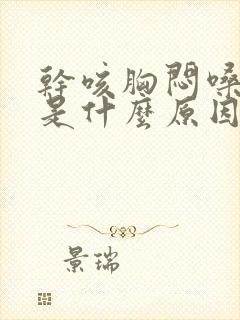 幹咳胸悶嗓
是什麼原因
景瑞